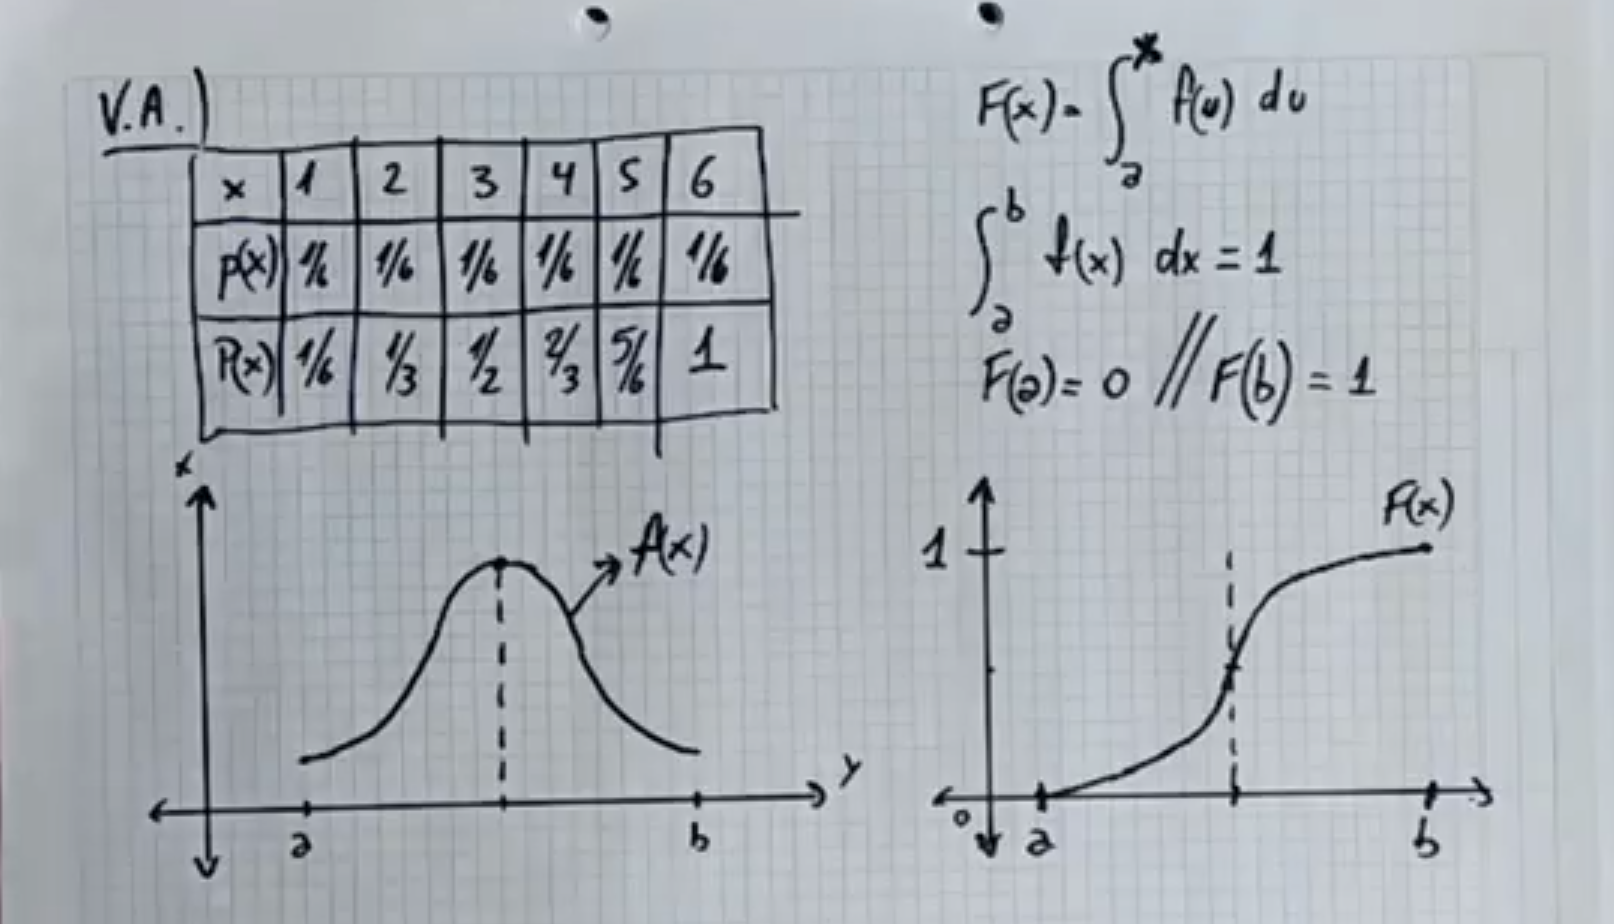 V.A.)
x 1 2 3 4 5 6
p(x) 1/6 1/6 1/6 1/6 1/6 1/6
P(x) 1/6 1/3 1/2 2/3 5/6 1
F(x) = ∫ₐˣ f(u) du
∫ₐᵇ f(x) dx = 1
F(a) = 0 // F(b) = 1
x
f(x)
y
a b
F(x)
1
0
a b